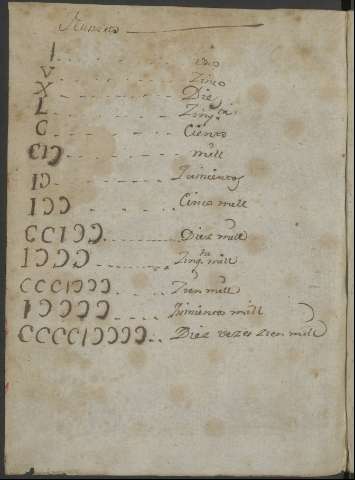 Numeros
I uno
V Zinco
X Diez
L Zinq.ta
C Ciento
CIƆ mill
IƆ Quinientos
IƆƆ Cinco mill
CCIƆƆ Diez mill
IƆƆƆ Zinq.ta mill
CCCIƆƆƆ Zien mill
IƆƆƆƆ Quinientos mill
CCCCIƆƆƆƆ Diez vezes zien mill